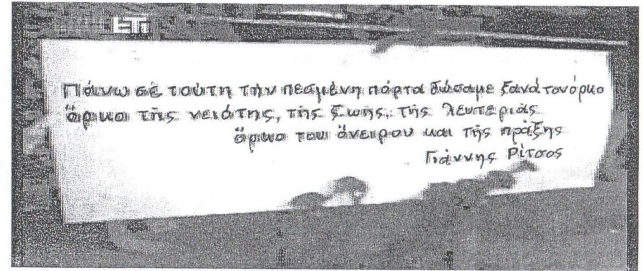 ΕΤ1
Πάνω σὲ τούτη τὴν πεσμένη πόρτα δώσαμε ξανὰ τον όρκο
ὅρκο τῆς νειότης, τῆς ζωῆς, τῆς λευτεριάς
ὅρκο του ὀνειρου και τῆς πράξης
Γιάννης Ρίτσος